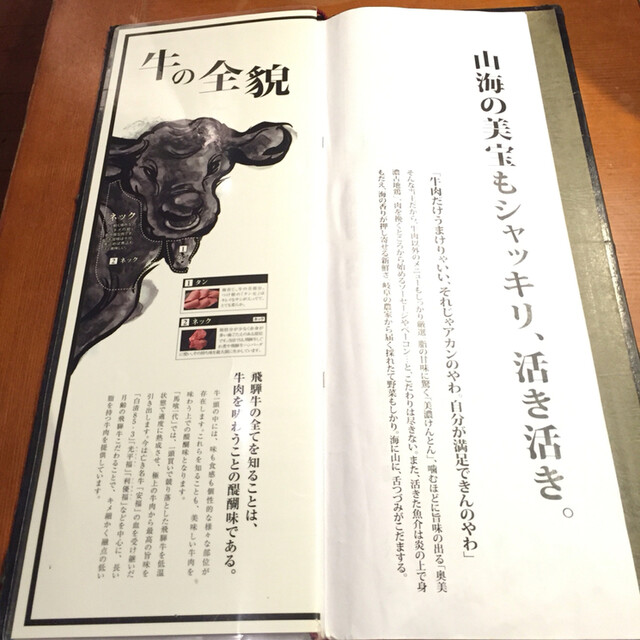 山海の美宝もシャッキリ、活き活き。
「牛肉だけうまけりゃいい、それじゃアカンのやわ。自分が満足できんのやわ」
そんな店主だから、牛肉以外のメニューもしっかり厳選。脂の甘味に驚く「美濃けんとん」、噛むほどに旨味の出る「奥美
濃古地鶏」、肉を挽くところから始めるソーセージやベーコン…と、こだわりは尽きない。また、活きた魚介は炎の上で身
もだえ、海の香りが押し寄せる新鮮さ。岐阜の農家から届く採れたて野菜もしかり。海に山に、舌つづみがこだまする。
牛の全貌
ネック
1
2 ネック
1 タン
2 ネック
飛騨牛の全てを知ることは、
牛肉を味わうことの醍醐味である。
牛一頭の中には、味も食感も個性的な様々な部位が
存在します。これらを知ることも、美味しい牛肉を
味わう上での醍醐味となります。
「馬喰一代」では、一頭買いで競り落とした飛騨牛を低温
状態で適度に熟成させ、極上の牛肉から最高の旨味を
引き出します。今は亡き名牛「安福」の血を受け継いだ
「白清85-3」「光平福」「利優福」などを中心に、長い
月齢の飛騨牛にこだわることで、キメ細かく融点の低い
脂を持つ牛肉を提供しています。